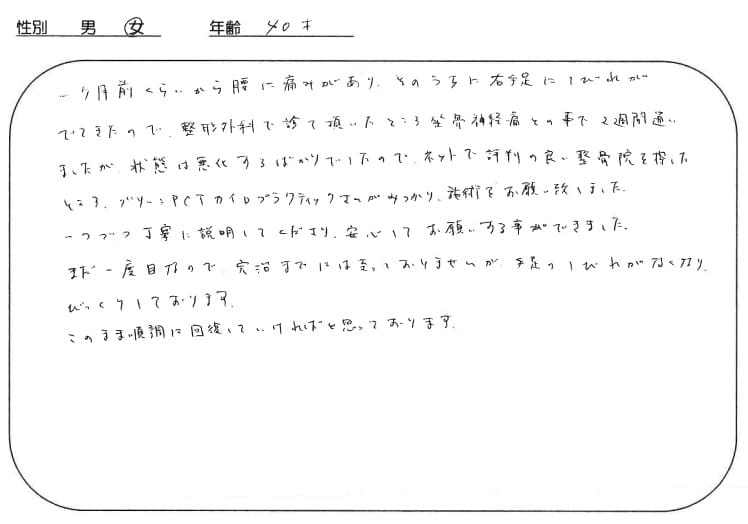 性別 男 女 年齢 40才
一ヶ月前くらいから腰に痛みがあり、そのうちに右手足にしびれが
でてきたので、整形外科で診て頂いたところ坐骨神経痛との事で2週間通い
ましたが、状態は悪化するばかりでしたので、ネットで評判の良い整骨院を探した
ところ、グリーンPCTカイロプラクティックさんがみつかり、施術をお願い致しました。
一つづつ丁寧に説明してくださり、安心してお願いする事ができました。
まだ一度目なので、完治までには至っておりませんが、手足のしびれがなくなり、
びっくりしております。
このまま順調に回復していければと思っております。